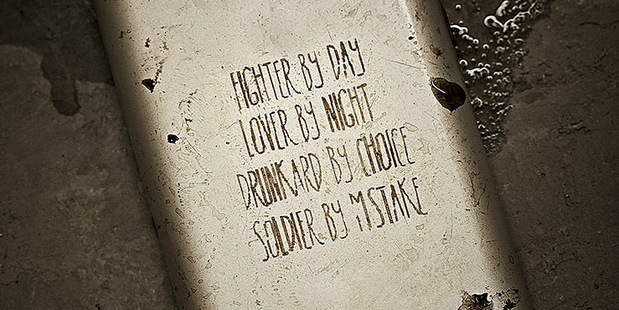 FIGHTER BY DAY
LOVER BY NIGHT
DRUNKARD BY CHOICE
SOLDIER BY MISTAKE